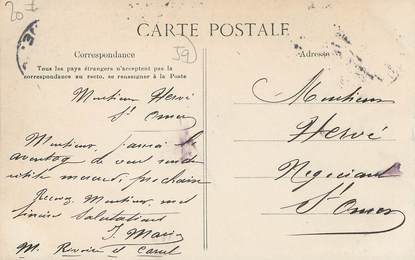 20 f
59
CARTE POSTALE
Correspondance
Tous les pays étrangers n'acceptent pas la
correspondance au recto, se renseigner à la Poste
Adresse
Monsieur Hervé
St Omer
Monsieur, j'aurai le
avantag de vous rendre
visite mercredi prochain
Recevez Monsieur mes
sincères Salutations
J. Marin
M.
Monsieur
Hervé
Negociant
St Omer